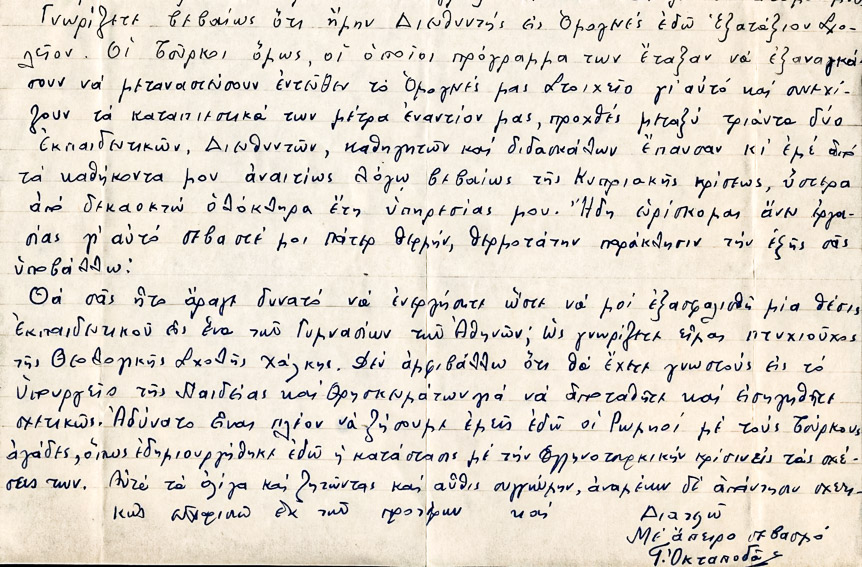 Γνωρίζετε βεβαίως ὅτι ἤμην Διευθυντής εἰς Ὁμογενές ἐδῶ Ἑξατάξιον Σχο-
λεῖον. Οἱ Τοῦρκοι ὅμως, οἱ ὁποῖοι πρόγραμμα των ἔταξαν νά ἐξαναγκά-
σουν νά μεταναστεύσουν ἐντεῦθεν τό Ὁμογενές μας Στοιχεῖο γι' αὐτό καί συνεχί-
ζουν τά καταπιεστικά των μέτρα ἐναντίον μας, προχθές μεταξύ τριάντα δύο
Ἐκπαιδευτικῶν, Διευθυντῶν, καθηγητῶν καί διδασκάλων ἔπαυσαν κι' ἐμέ ἀπό
τά καθήκοντά μου ἀναιτίως λόγῳ βεβαίως τῆς Κυπριακῆς κρίσεως, ὕστερα
ἀπό δεκαοκτώ ὁλόκληρα ἔτη ὑπηρεσίας μου. Ἤδη εὑρίσκομαι ἄνευ ἐργα-
σίας γι' αὐτό σεβαστέ μοι πάτερ θερμήν, θερμοτάτην παράκλησιν τήν ἑξῆς σᾶς
ὑποβάλλω:
Θά σᾶς ἦτο ἄραγε δυνατό νά ἐνεργήσητε ὥστε νά μοί ἐξασφαλισθῆ μία θέσις
ἐκπαιδευτικοῦ εἰς ἕνα τῶν Γυμνασίων τῶν Ἀθηνῶν; Ὡς γνωρίζετε εἶμαι πτυχιοῦχος
τῆς Θεολογικῆς Σχολῆς Χάλκης. Δέν ἀμφιβάλλω ὅτι θά ἔχετε γνωστούς εἰς τό
Ὑπουργεῖο τῆς Παιδείας καί Θρησκευμάτων γιά νά ἀποταθῆτε καί εἰσηγηθῆτε
σχετικῶς. Ἀδύνατο εἶναι πλέον νά ζήσουμε ἐμεῖς ἐδῶ οἱ Ρωμηοί μέ τούς Τούρκους
ἀγάδες, ὅπως ἐδημιουργήθηκε ἐδῶ ἡ κατάστασις μέ τήν Ἑλληνοτουρκικήν κρίσιν εἰς τάς σχέ-
σεις των. Αὐτά τά ὀλίγα καί ζητώντας καί αὖθις συγγνώμην, ἀναμένων δέ ἀπάντησιν σχετι-
κῶς ἐκ τῶν προτέρων καί Διατελῶ
Μέ ἄπειρο σεβασμό
Γ. Ὀκταποδᾶς